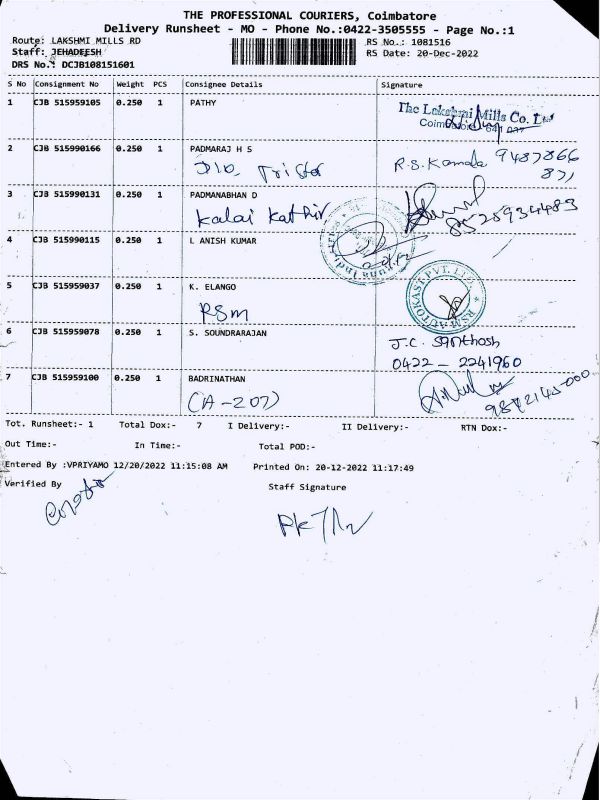 THE PROFESSIONAL COURIERS, Coimbatore
Delivery Runsheet - MO - Phone No.:0422-3505555 - Page No.:1
Route: LAKSHMI MILLS RD RS No.: 1081516
Staff: JEHADEESH RS Date: 20-Dec-2022
DRS No.: DCJB108151601
S No Consignment No Weight PCS Consignee Details Signature
1 CJB 515959105 0.250 1 PATHY
The Lakshmi Mills Co. Ltd
Coimbatore - 641 037
2 CJB 515990166 0.250 1 PADMARAJ H S
R.S. Kamala 9487866
871
3 CJB 515990131 0.250 1 PADMANABHAN D
Kalai Kathir
8525934483
4 CJB 515990115 0.250 1 L ANISH KUMAR
5 CJB 515959037 0.250 1 K. ELANGO
RSM
RSM AUTOKAST PVT. LTD.
6 CJB 515959078 0.250 1 S. SOUNDRARAJAN
J.C. Santhosh
0422 - 2241960
7 CJB 515959100 0.250 1 BADRINATHAN
(A-207)
Tot. Runsheet:- 1 Total Dox:- 7 I Delivery:- II Delivery:- RTN Dox:-
Out Time:- In Time:- Total POD:-
Entered By :VPRIYAMO 12/20/2022 11:15:08 AM Printed On: 20-12-2022 11:17:49
Verified By Staff Signature